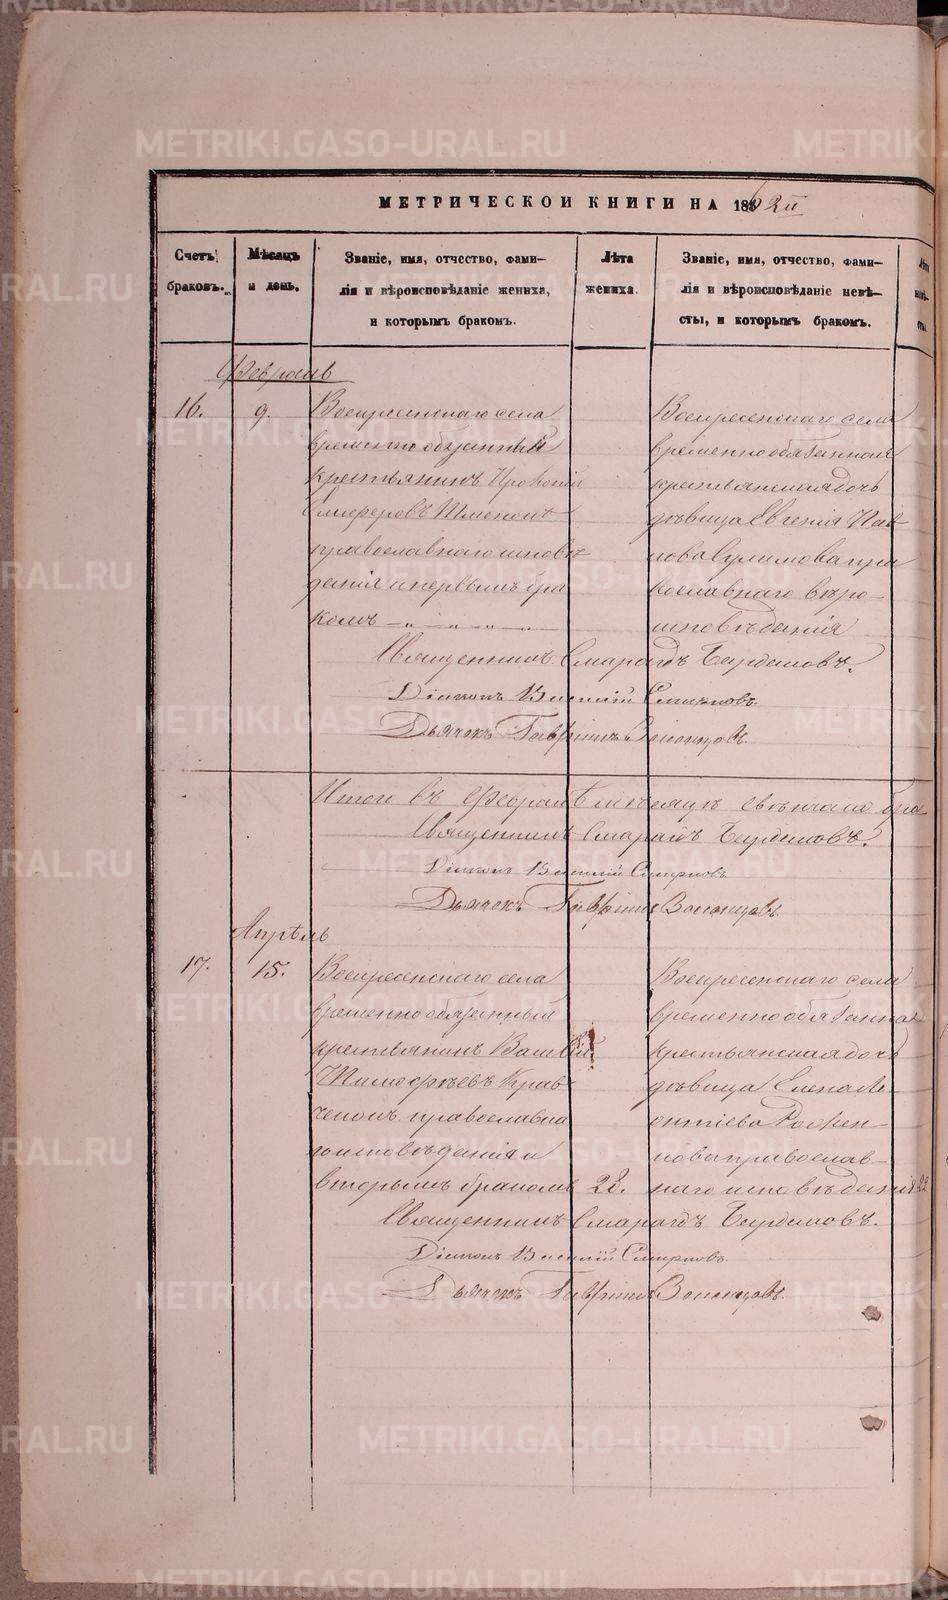 МЕТРИЧЕСКОИ КНИГИ НА 1862й
Счетъ браковъ.
Мѣсяцъ и день.
Званіе, имя, отчество, фами-
лія и вѣроисповѣданіе жениха,
и которымъ бракомъ.
Лѣта
жениха.
Званіе, имя, отчество, фами-
лія и вѣроисповѣданіе невѣ-
сты, и которымъ бракомъ.
Февраль
16.
9.
Воскресенскаго села
временно обязанный
крестьянинъ
православнаго исповѣ
данія и первымъ бра
комъ
Воскресенскаго села
временнообязанная
крестьянская дочь
дѣвица Евгенія Пав
лова пра
вославнаго вѣро-
исповѣданія
Священникъ Смарагдъ
Діаконъ Василій Смирновъ.
Дьячекъ Гавріилъ
Итого въ Февралѣ мѣсяцѣ
Священникъ Смарагдъ
Діаконъ Василій Смирновъ
Дьячекъ Гавріилъ
Апрѣль
17.
15.
Воскресенскаго села
временно обязанный
крестьянинъ
Тимофѣевъ Крав
ченокъ православна
го исповѣданія и
вторымъ бракомъ
28.
Воскресенскаго села
временно обязанная
крестьянская дочь
дѣвица Елена Ле
онтіева
нова православ-
наго исповѣданія
22
Священникъ Смарагдъ
Діаконъ Василій Смирновъ.
Дьячекъ Гавріилъ
METRIKI.GASO-URAL.RU